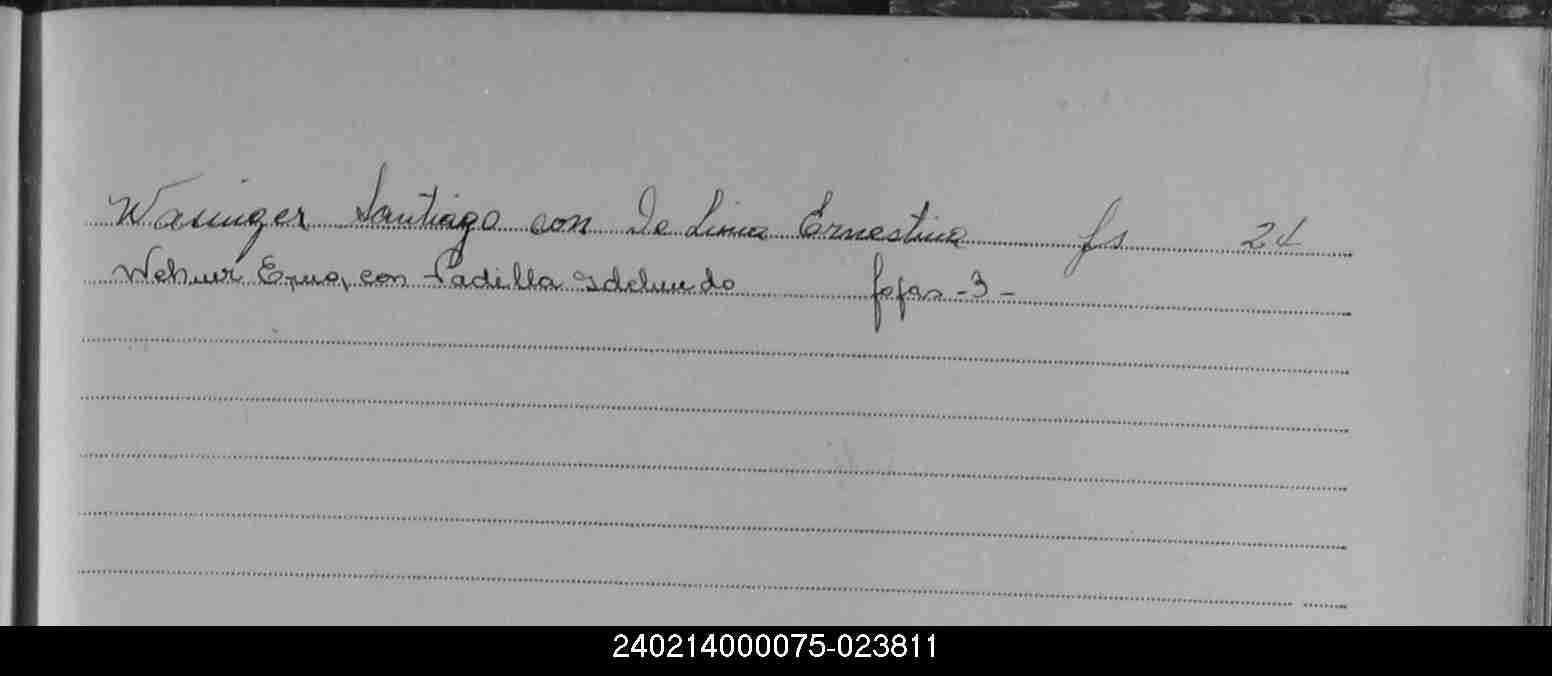 Wasinger Santiago con De Lima Ernestina fs 24
con Padilla fojas -3-
240214000075-023811